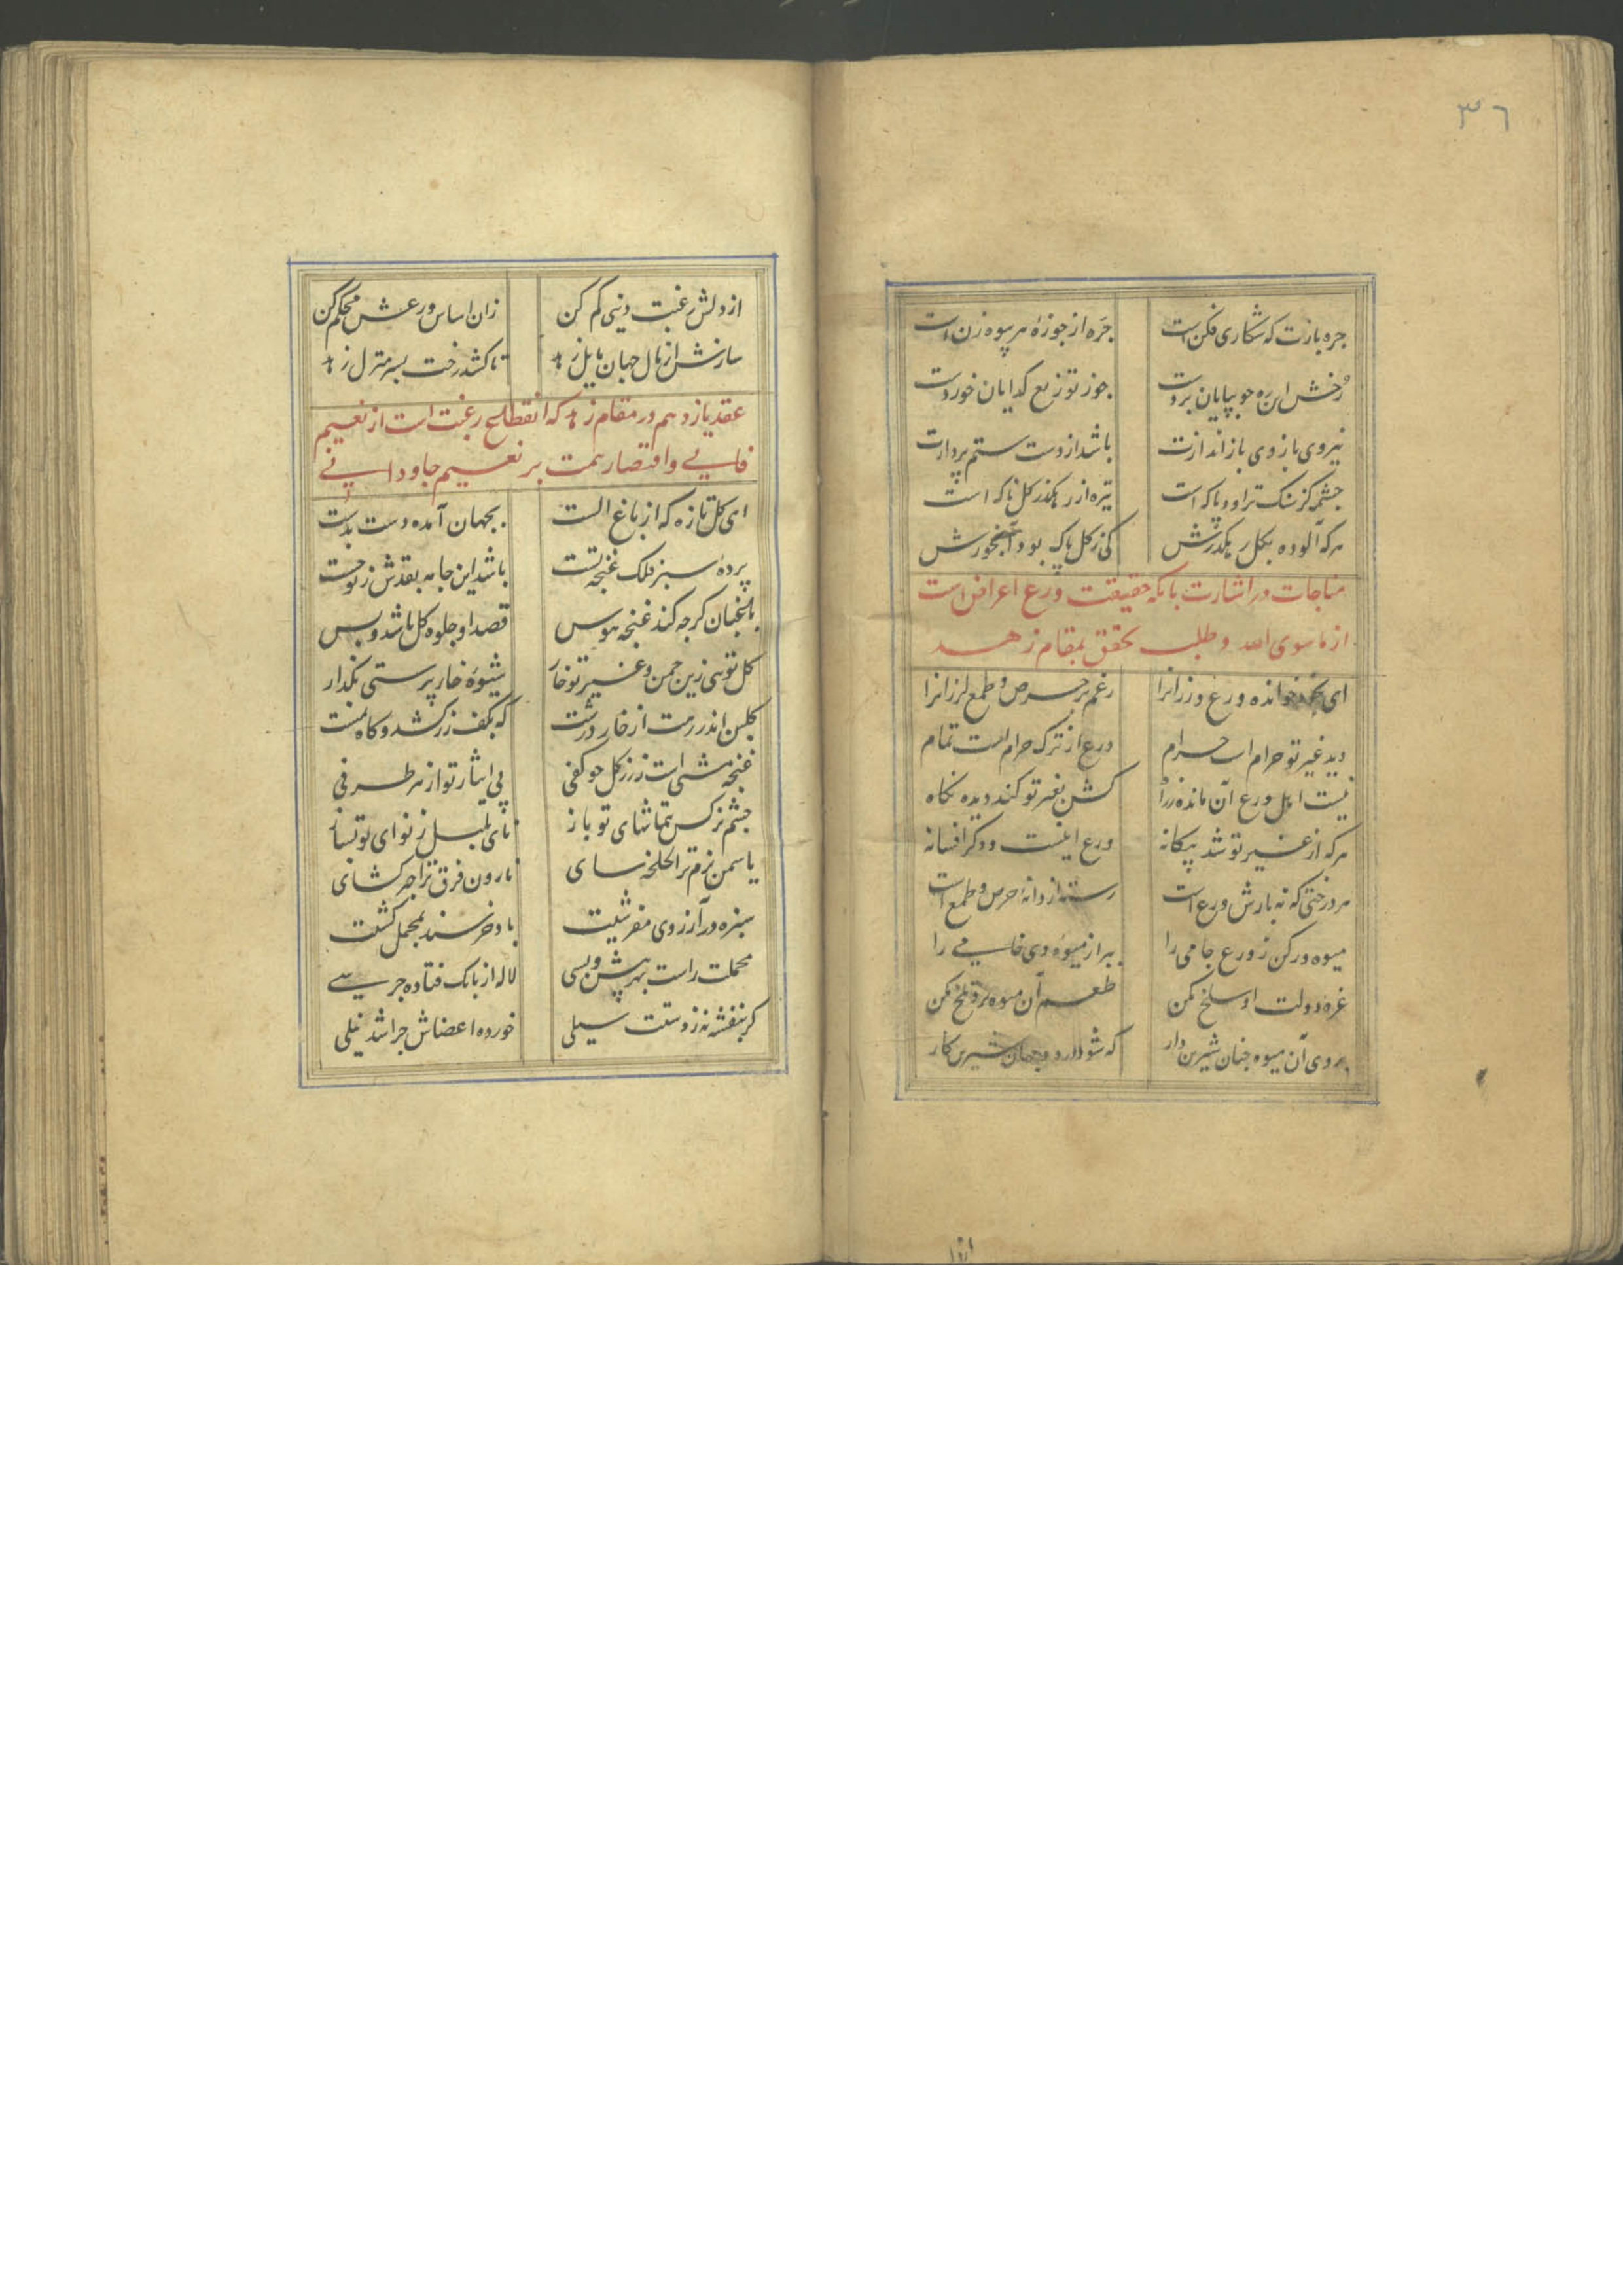 ٣٦
جره بازت که شکاری فکن است جره از جوزهٔ هر پیوه زن است
رخش این ره جو بپایان بردت جوز توزیع کدایان خوردت
نیروی بازوی باز اندازت باشد از دست ستم پردازت
چشمه کز سنک تراود پاک است تیره از رهکذر کل ناک است
هر که آلوده بکل رهکذرش کی ز کل پاک بود آبخورش
مناجات در اشارت بانکه حقیقت ورع اعراض است
از ماسوی الله و طلب تحقق بمقام زهد
ای بخود خوانده ورع ورزانرا رغم هر حرص و طمع لرزانرا
دید غیر تو حرام است حرام ورع از ترک حرام است تمام
نیست اهل ورع آن مانده ز راه کش بغیر تو کند دیده نکاه
هر که از غیر تو شد بیکانه ورع اینست و دکر افسانه
هر درختی که نه بارش ورع است رسته از دانهٔ حرص و طمع است
میوه ور کن ز ورع جامی را ببر از میوهٔ وی خامی را
غرهٔ دولت او سلخ مکن طعم آن میوه برو تلخ مکن
بروی آن میوه جنان شیرین دار که شود در دو جهان شیرین کار
از دلش رغبت دنیی کم کن زان اساس ورعش محکم کن
سازش از مال جهان مایل زهد تا کشد رخت بسر منزل زهد
عقد یازدهم در مقام زهد که انقطاع رغبت است از نعیم
فانی و اقتصار همت بر نعیم جاودانی
ای کل تازه که از باغ الست بجهان آمده دست بدست
پردهٔ سبز فلک غنجه تست باشد این جامه بقدش ز تو جست
باغبان کرجه کند غنجه هوس قصد او جلوه کل باشد و بس
کل تویی زین جمن و غیر تو خار شیوهٔ خار پرستی بکذار
کلبن اندر رهت از خار درشت که بکف زر کشد و کاه بمشت
غنجه مشتی است ز زر کل جو کفی پی ایثار تو از هر طرفی
جشم نرکس بتماشای تو باز نای بلبل ز نوای تو بساز
یاسمن بزم ترا لخلخه سای نارون فرق ترا جتر کشای
سبزه در آرزوی مفرشیت باد خرسند بمحمل کشیت
محملت راست بهر پیش و پسی لاله از بانک فتاده جرسی
کر بنفشه نه ز دستت سیلی خورده اعضاش جرا شد نیلی